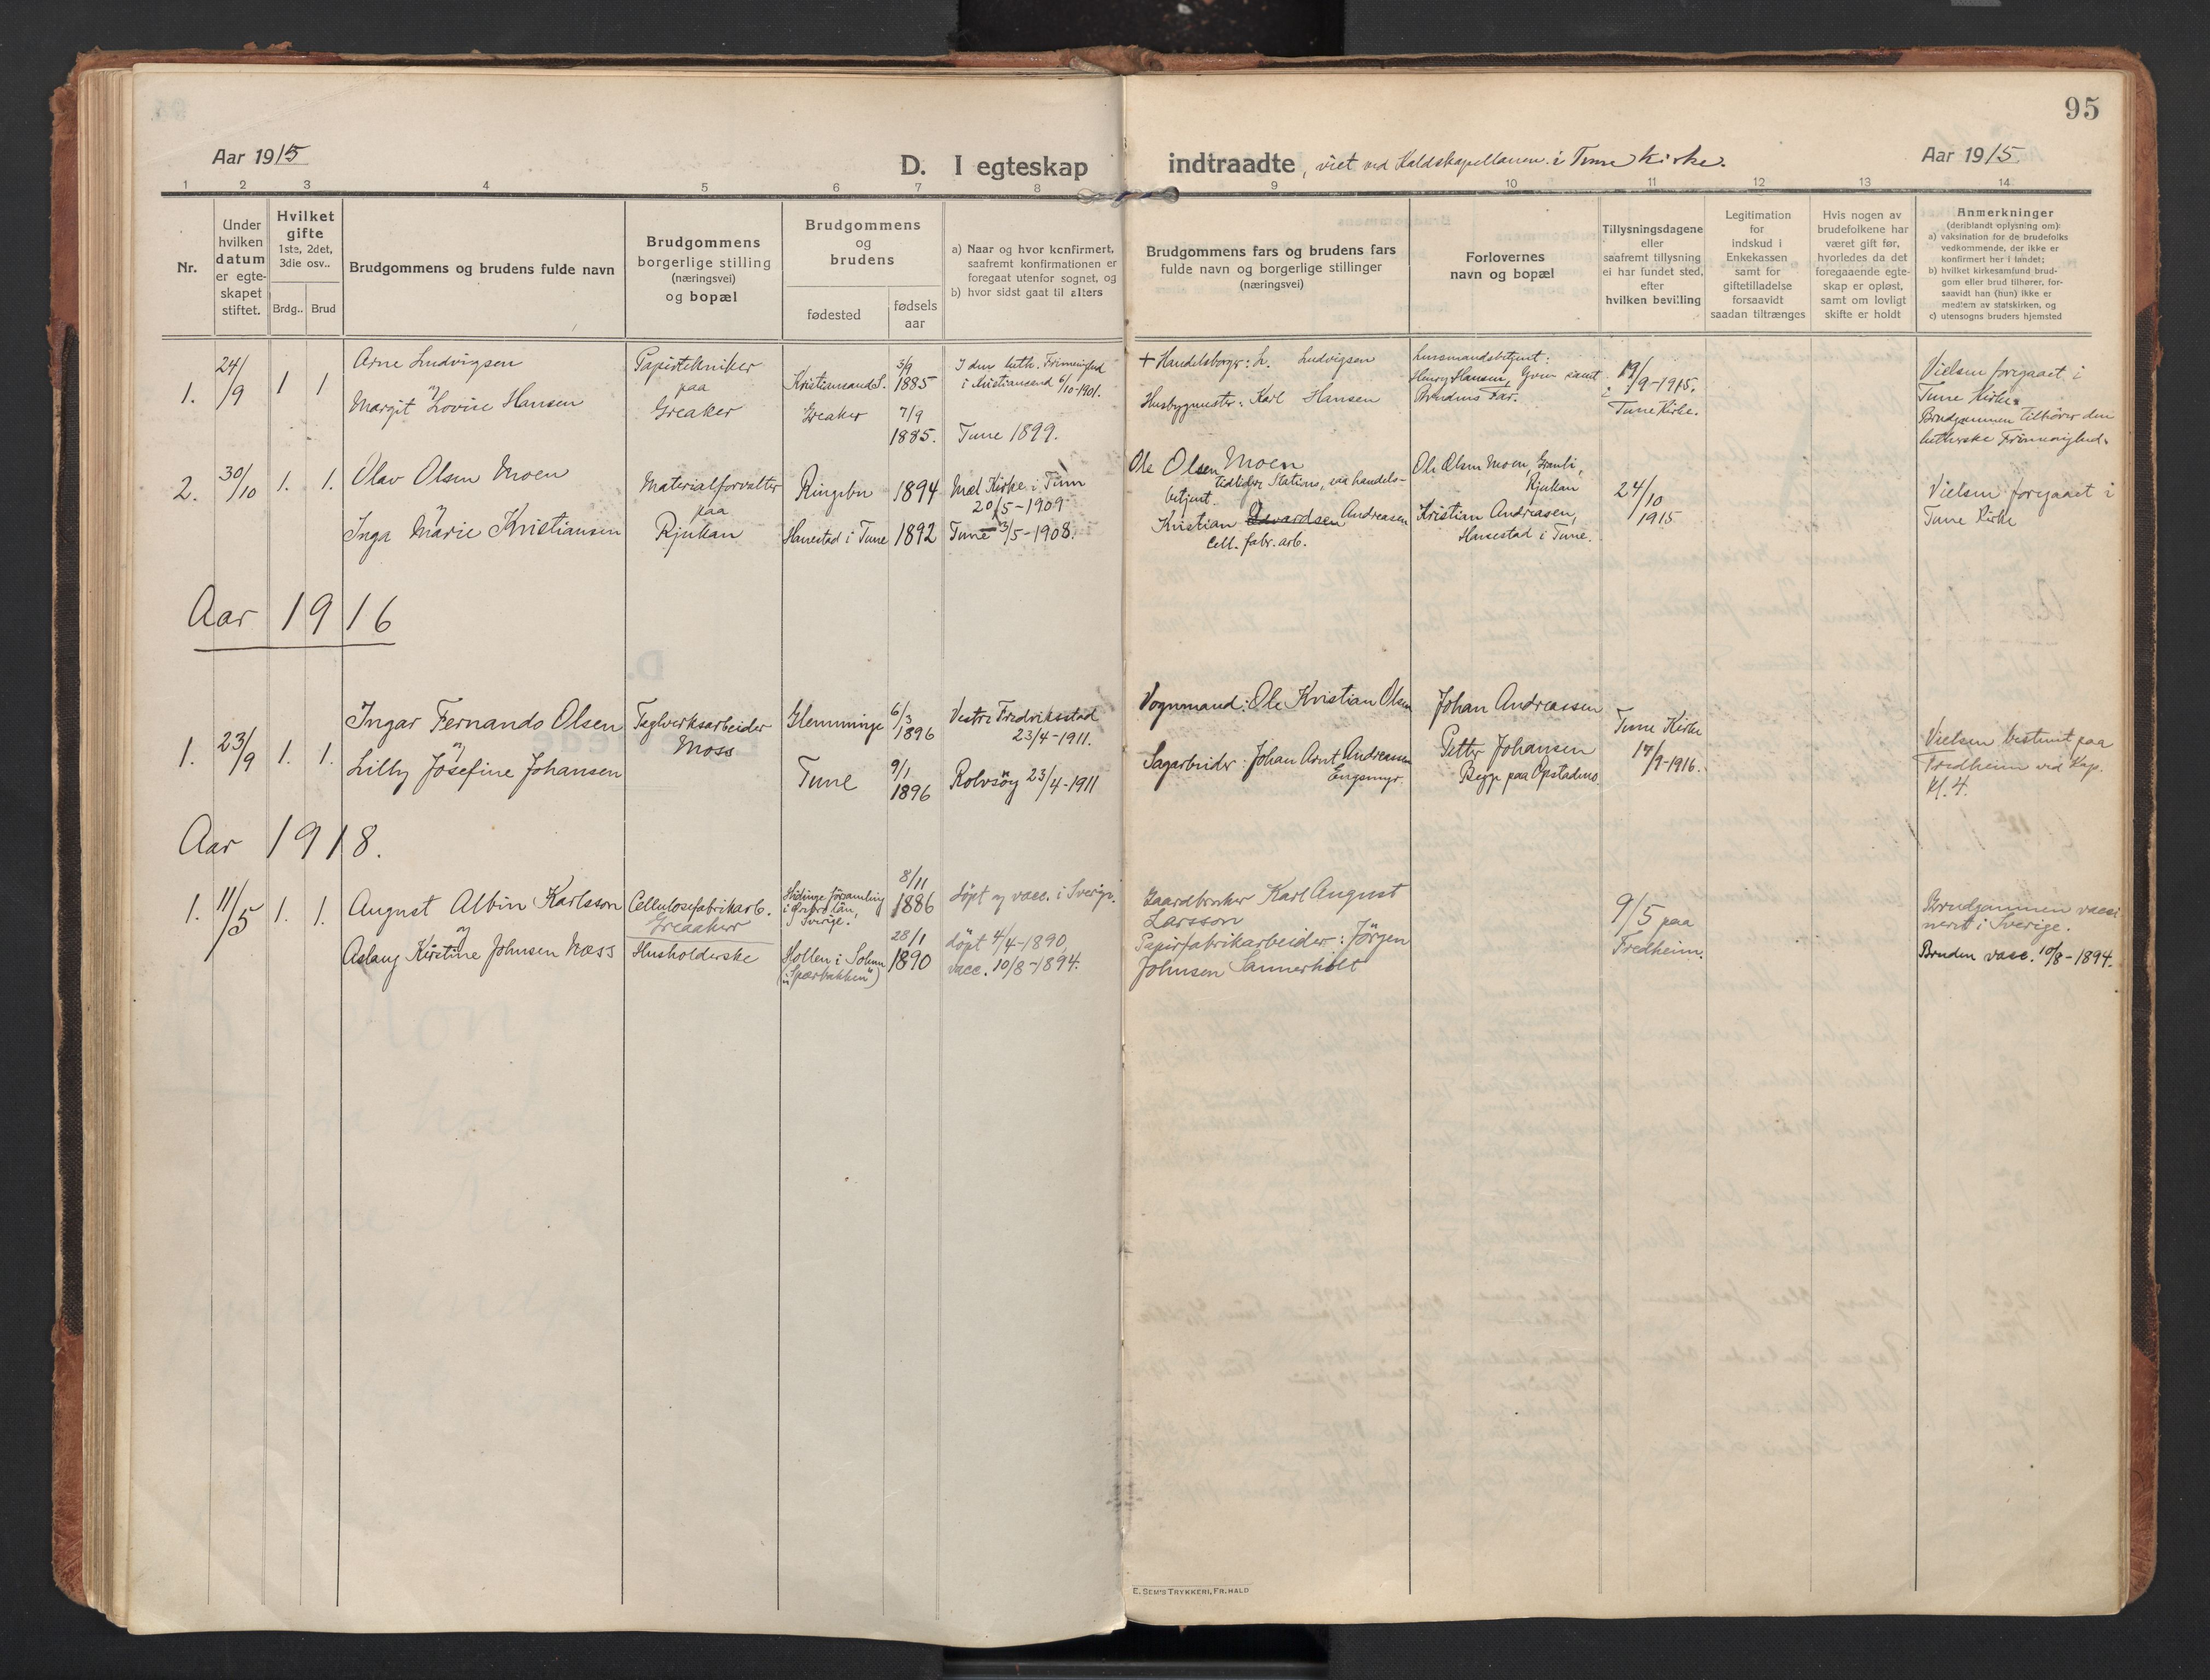 95
Aar 1915
D. I egteskap indtraadte, viet ved Kaldskapellanen i Tune Kirke.
Aar 1915
1 2 3 4 5 6 7 8 9 10 11 12 13 14
Nr.
Under
hvilken
datum
er egte-
skapet
stiftet.
Hvilket
gifte
1ste, 2det,
3die osv..
Brdg.. Brud
Brudgommens og brudens fulde navn
Brudgommens
borgerlige stilling
(næringsvei)
og bopæl
Brudgommens
og
brudens
fødested
fødsels
aar
a) Naar og hvor konfirmert,
saafremt konfirmationen er
foregaat utenfor sognet, og
b) hvor sidst gaat til alters
Brudgommens fars og brudens fars
fulde navn og borgerlige stillinger
(næringsvei)
Forlovernes
navn og bopæl
Tillysningsdagene
eller
saafremt tillysning
ei har fundet sted,
efter
hvilken bevilling
Legitimation
for
indskud i
Enkekassen
samt for
giftetilladelse
forsaavidt
saadan tiltrænges
Hvis nogen av
brudefolkene har
været gift før,
hvorledes da det
foregaaende egte-
skap er opløst,
samt om lovligt
skifte er holdt
Anmerkninger
(deriblandt oplysning om):
a) vaksination for de brudefolks
vedkommende, der ikke er
konfirmert her i landet;
b) hvilket kirkesamfund brud-
gom eller brud tilhører, for-
saavidt han (hun) ikke er
medlem av statskirken, og
c) utensogns bruders hjemsted
1.
24/9
1 1
Arne Ludvigsen
og
Margit Lovise Hansen
Papirtekniker
paa
Greaker
Kristiansand S.
Greaker
3/9
1885
7/9
1885.
I den luth. Frimenighed
i Kristiansand 6/10-1901.
Tune 1899.
+ Handelsborger: L. Ludvigsen
Husbygmester: Karl Hansen
Lensmandsbetjent:
Henry Hansen, samt
Brudens Far.
19/9-1915.
i
Tune Kirke.
Vielsen foregaaet i
Tune Kirke.
Brudgommen tilhører den
lutherske Frimenighed.
2.
30/10
1. 1.
Olav Olsen Moen
og
Inga Marie Kristiansen
Materialforvalter
paa
Rjukan
Ringebu
Hanestad i Tune
1894
1892
Mæl Kirke i Tinn
20/5-1909
Tune 3/5-1908.
Ole Olsen Moen
tidligere Stations, handels-
betjent
Kristian Edvardsen Andreasen
Cell. fabr. arb.
Ole Olsen Moen,
Rjukan
Kristian Andreasen,
Hanestad i Tune.
24/10
1915.
Vielsen foregaaet i
Tune Kirke
Aar 1916
1.
23/9
1. 1.
Ingar Fernando Olsen
og
Lilly Josefine Johansen
Teglverksarbeider
Moss
Glemminge
Tune
6/3
1896
9/1
1896
Vestre Fredriksstad
23/4-1911.
Rolvsøy 23/4-1911
Vognmand: Ole Kristian Olsen
Sagarbeider: Johan Arnt Andreassen
Engsmyr.
Johan Andreassen
Petter Johansen
Begge paa Opstadmo.
Tune Kirke
17/9-1916.
Vielsen bestemt paa
Fredheim ved Kap.
kl. 4.
Aar 1918.
1.
11/5
1. 1.
August Albin Karlsson
og
Aslaug Kirstine Johnsen Næss
Cellulosefabrikarb.
Greaaker
Husholderske
Hidinge församling
i Örebro län,
Sverige.
Hollen i Sohun
(i "Spærbakken")
8/11
1886
28/1
1890
døpt og vacc. i Sverige.
døpt 4/4-1890,
vacc. 10/8-1894.
Gaardbruker Karl August
Larsson
Papirfabrikarbeider: Jörgen
Johnsen Sannerholt
9/5 paa
Fredheim.
Brudgommen vacci
nert i Sverige.
Bruden vacc. 10/8-1894.
E. SEM'S TRYKKERI, FR.HALD